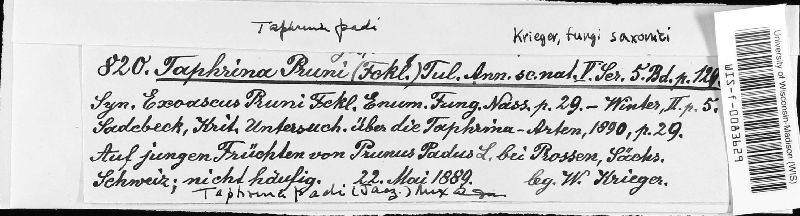 Taphrina padi
Krieger, fungi saxonici
820. Taphrina Pruni (Fckl.) Tul. Ann. sc. nat. V. Ser. 5. Bd. p. 129.
Syn. Exoascus Pruni Fckl. Enum. Fung. Nass. p. 29. – Winter, II. p. 5.
Sadebeck, Krit. Untersuch. über die Taphrina-Arten, 1890, p. 29.
Auf jungen Früchten von Prunus Padus L. bei Rossen, Sächs.
Schweiz; nicht häufig. 22. Mai 1889. leg. W. Krieger.
Taphrina padi (Jacz.) Mix
University of Wisconsin-Madison (WIS)
WIS-f-0083929